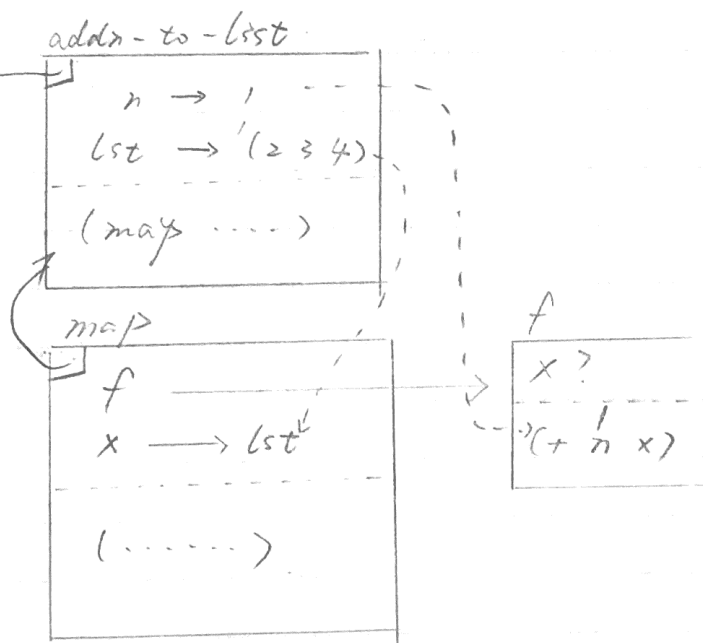 addn-to-list
n → 1
lst → '(2 3 4)
(map .....)
map
f
x → lst
(.......)
f
x ?
1
(+ n x)